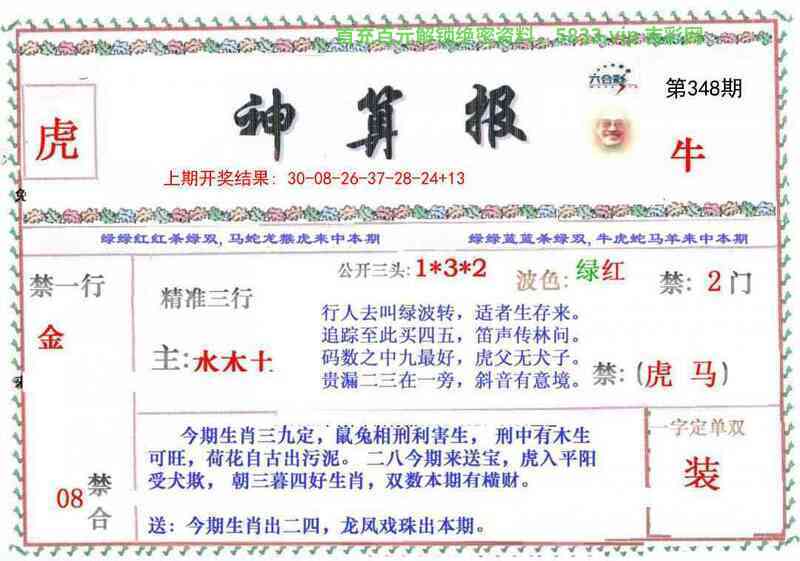 首充百元解锁绝密资料，5833.vip 壹彩网
六合彩
第348期
虎
神算报
牛
上期开奖结果: 30-08-26-37-28-24+13
绿绿红红杀绿双,马蛇龙猴虎来中本期
绿绿蓝蓝杀绿双,牛虎蛇马羊来中本期
禁一行
金
精准三行
主:水木土
公开三头:1*3*2
波色:绿红
禁:2门
行人去叫绿波转，适者生存来。
追踪至此买四五，笛声传林问。
码数之中九最好，虎父无犬子。
贵漏二三在一旁，斜音有意境。
禁:(虎 马)
08
禁合
今期生肖三九定，鼠兔相刑利害生， 刑中有木生
可旺，荷花自古出污泥。 二八今期来送宝，虎入平阳
受犬欺， 朝三暮四好生肖，双数本期有横财。
送：今期生肖出二四，龙凤戏珠出本期。
一字定单双
装